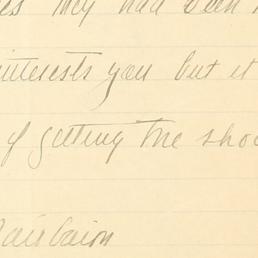 they had been
interests you but it
of getting the shoe